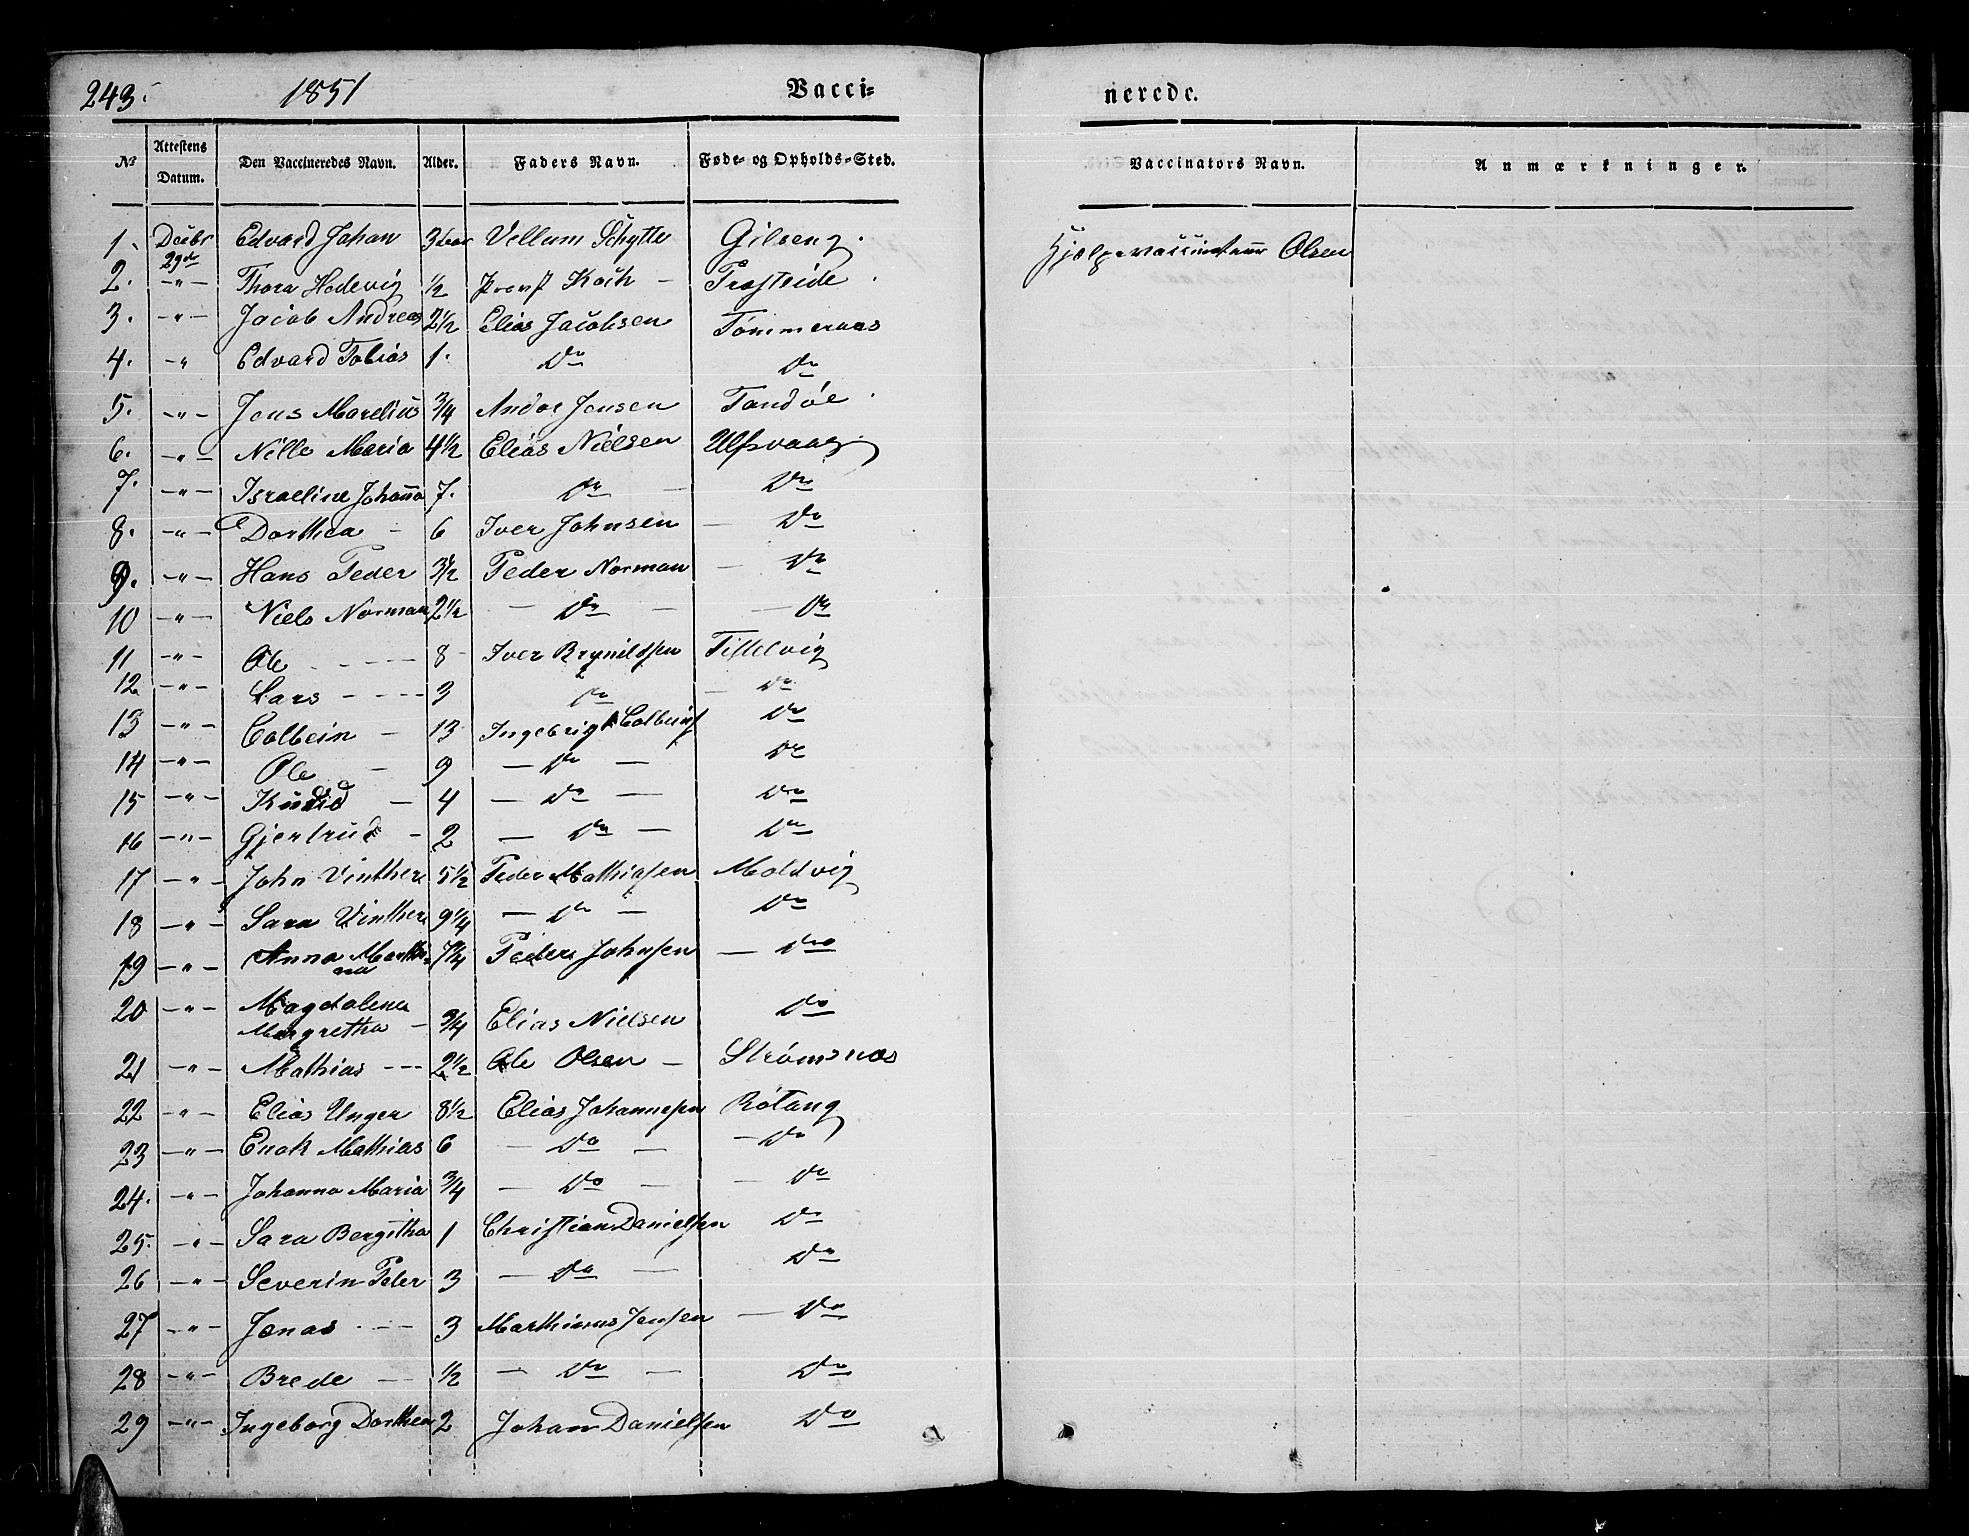 243. 1851 Vacci- nerede.
No Attestens Datum. Den Vaccineredes Navn. Alder. Faders Navn. Føde- og Opholds-Sted. Vaccinators Navn. Anmærkninger.
1. Decbr 29de Edvard Johan 3 Vellum Schytte Gilseng. Hjælpevaccinateur Olsen
2. -"- Thora Hedevig 1/2 Koch - Prosteide.
3. -"- Jacob Andreas 2 1/2 Elias Jacobsen Tømmeraas
4. -" Edvard Tobias 1. Do Do
5. -"- Jens Marelius 3/4 Andor Jensen Tandøe.
6. -"- Nille Maria 4 1/2 Elias Nielsen Ulfsvaag
7. -"- Israeline Johanna 7. Do - Do
8. -"- Dorthea - 6 Iver Johnsen - Do
9. -"- Hans Peder 3 1/2 Peder Norman - Do
10 -"- Niels Norman 2 1/2 - Do - - Do
11 -"- Ole - - - - 8 - Iver Brynildsen Tittelvig
12 -"- Lars - - - - 3 Do - Do
13 -"- Colbein - 13 Ingebrigt Colbeins Do
14 -"- Ole - 9 - Do - Do
15 -"- - 4 - Do - Do
16 -"- Gjertrud - 2 - Do - Do
17 -"- John Vinther 5 1/2 Peder Mathiasen Moldvig
18 -"- Sara Vinther 9 1/4 - Do - Do
19 -"- Anna Marthina 7 3/4 Peder Johnsen - Do
20 -"- Magdalena Margretha - 3/4 Elias Nielsen Do
21 -"- Mathias - - - 2 1/2 Ole Olsen - Strømsnæs
22 -"- Elias Unger 8 1/2 Elias Johannesen Røtang
23 -"- Enok Mathias 6 - Do - - Do
24. -"- Johanna Maria 3/4 - Do - - Do
25. -"- Sara Bergitha 1 Christian Danielsen Do
26 -"- Severin Peder 3 - Do - Do
27 -"- Jonas - - - 3 Marthinus Jensen - Do
28 -"- Brede - - 1/2 - Do - Do
29 -"- Ingeborg Dorthea 2 Johan Danielsen Do